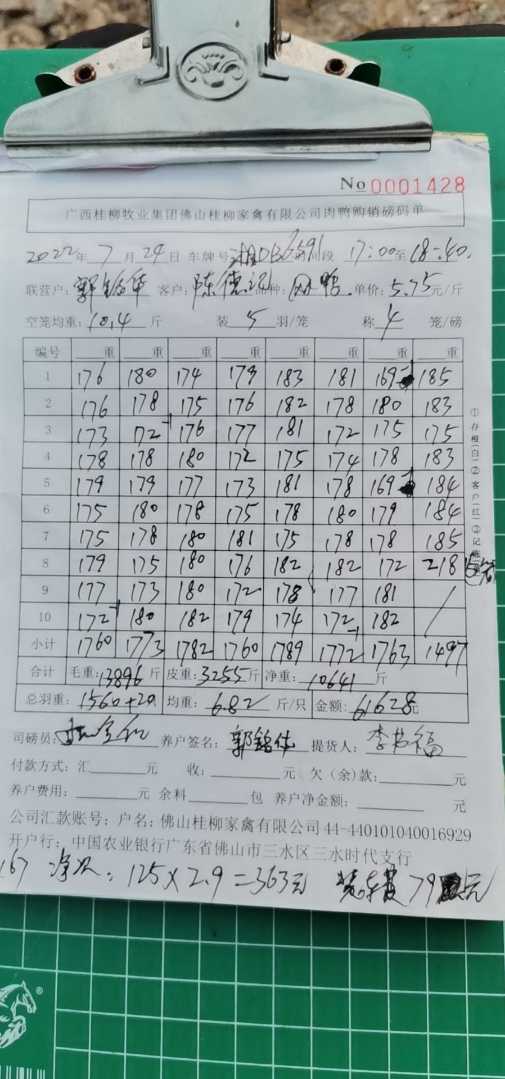 No 0001428
广西桂柳牧业集团佛山桂柳家禽有限公司肉鸭购销磅码单
2022年 7月 24日 车牌号 时间段 17:00至18:40
联营户: 客户: 陈德 品种: 单价: 5.75元/斤
空笼均重: 10.4 斤 装 5 羽/笼 称 4 笼/磅
编号 重 重 重 重 重 重 重 重
1 176 180 174 179 183 181 169 185
2 176 178 175 176 182 178 180 183
3 173 172 176 177 181 172 175 175
4 178 178 180 172 175 174 178 183
5 179 179 177 173 181 178 169 184
6 175 180 178 175 178 180 179 184
7 175 178 180 181 175 178 178 185
8 179 175 180 176 182 182 172 218
9 177 173 180 172 178 177 181
10 172 180 182 179 174 172 182
小计 1760 1773 1782 1760 1789 1772 1763 1497
合计 毛重: 13896 斤 皮重: 3255 斤 净重: 10641 斤
总羽重: 1560+20 均重: 6.82 斤/只 金额: 61628元
司磅员: 养户签名: 提货人: 李书福
付款方式: 汇 元 收: 元 欠(余)款: 元
养户费用: 元 余料 包 养户净金额: 元
公司汇款账号: 户名: 佛山桂柳家禽有限公司 44-440101040016929
开户行: 中国农业银行广东省佛山市三水区三水时代支行
167 125×2.9=363元 79 元
①存根(白)②客户(红)③记